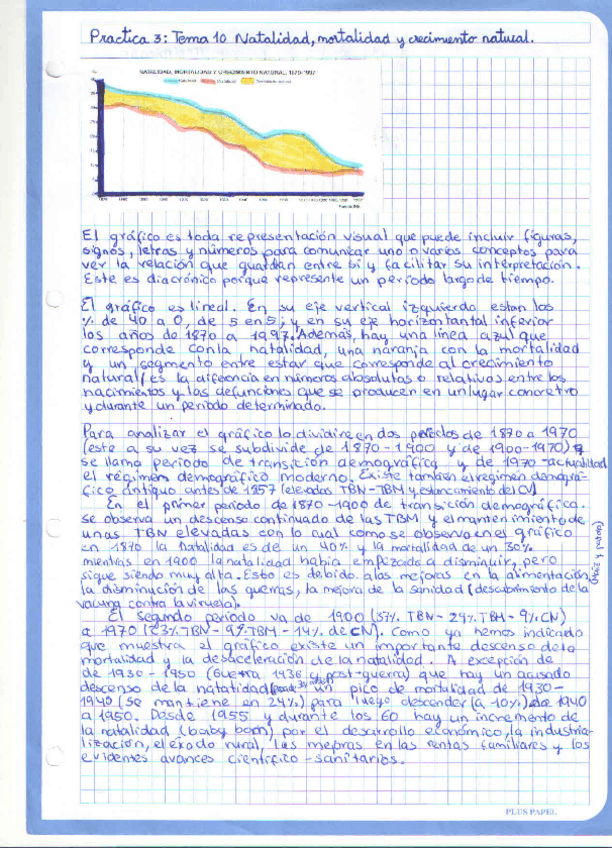 Practica 3: Tema 10 Natalidad, mortalidad y crecimiento natural.
NATALIDAD, MORTALIDAD Y CRECIMIENTO NATURAL, 1870-1997
El gráfico es toda representación visual que puede incluir figuras,
signos, letras y números para comunicar uno o varios conceptos para
ver la relación que guardan entre si y facilitar su interpretación.
Este es diacrónico porque represente un período largo de tiempo.
El gráfico es lineal. En su eje vertical izquierda estan los
% de 40 a 0, de 5 en 5; y en su eje horizontal inferior
los años de 1870 a 1997. Además, hay una línea azul que
corresponde con la natalidad, una naranja con la mortalidad
y un segmento entre estar que corresponde al crecimiento
natural/es la diferencia en números absolutos o relativos entre los
nacimientos y las defunciones que se producen en un lugar concretro
y durante un período determinado.
Para analizar el gráfico lo dividire en dos períodos de 1870 a 1970
(este a su vez se subdivide de 1870-1900 y de 1900-1970)
se llama periodo de transición demográfica y de 1970-actualidad
el régimen demográfico moderno. Existe también el regimen demográ-
fico antiguo antes de 1857 (elevadas TBN-TBM y estancamiento del CV)
En el primer período de 1870-1900 de transición demográfica.
Se observa un descenso continuado de las TBM y el mantenimiento de
unas TBN elevadas con lo cual como se observa en el gráfico
en 1870 la natalidad es de un 40% y la mortalidad de un 30%
mientras en 1900 la natalidad había empezado a disminuir, pero
sigue siendo muy alta. Esto es debido a las mejoras en la alimentación, (maíz y patata)
la disminución de las guerras, la mejora de la sanidad (descubrimiento de la
vacuna contra la viruela).
El segundo período va de 1900 (37% TBN - 29% TBM - 9% CN)
a 1970 (23% TBN - 9% TBM - 14% de CN). Como ya hemos indicado
que muestra el gráfico existe un importante descenso de la
mortalidad y la desaceleración de la natalidad. A excepción de
de 1930-1950 (Guerra 1936 y post-guerra) que hay un acusado
descenso de la natatidad un pico de mortalidad de 1930-
1940 (Se mantiene en 24%) para luego descender (a 10%) de 1940
a 1950. Desde 1955 y durante los 60 hay un incremento de
la natalidad (baby boom) por el desarrollo económico, la industria-
lización, el éxodo rural, las mejoras en las rentas familiares y los
evidentes avances científico-sanitarios.
PLUS PAPEL